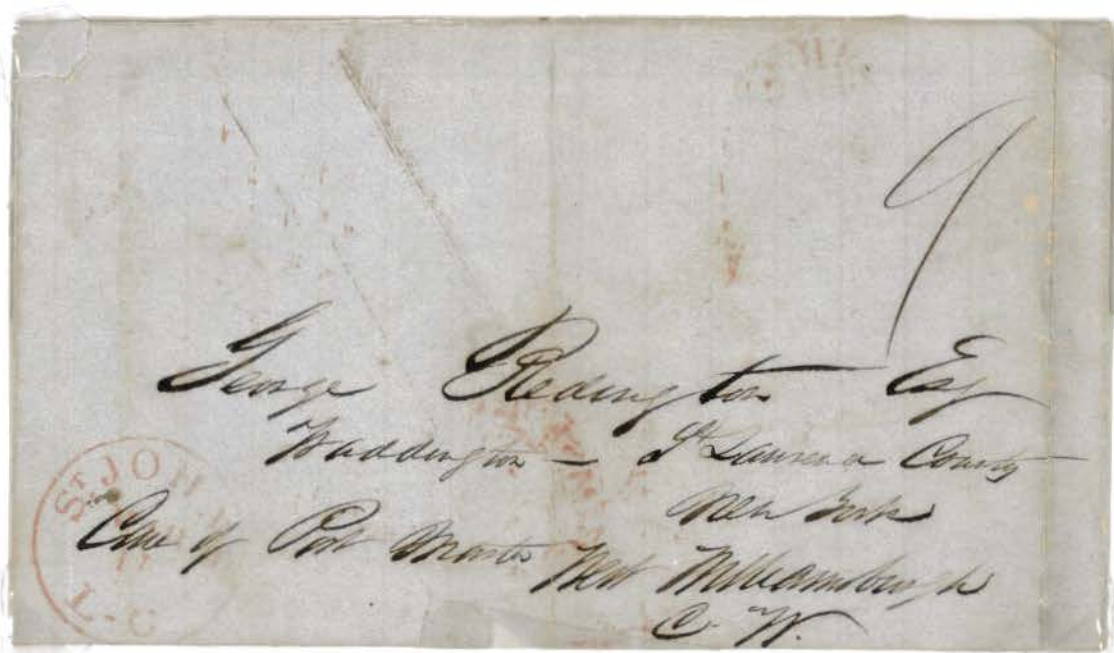 9
George Redington Esq
Waddington — St Lawrence County
New York
Care of Post Master West Williamsburgh
C. W.
ST JOH